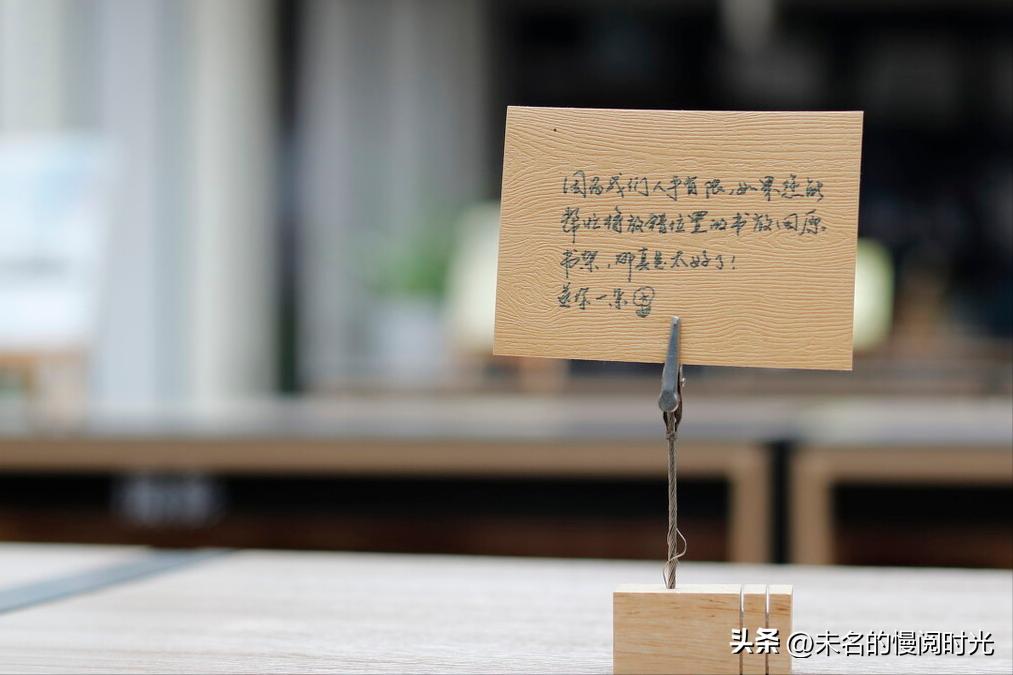 因为我们人手有限,如果您能
帮忙将放错位置的书放回原
书架,那真是太好了!
头条 @未名的慢阅时光